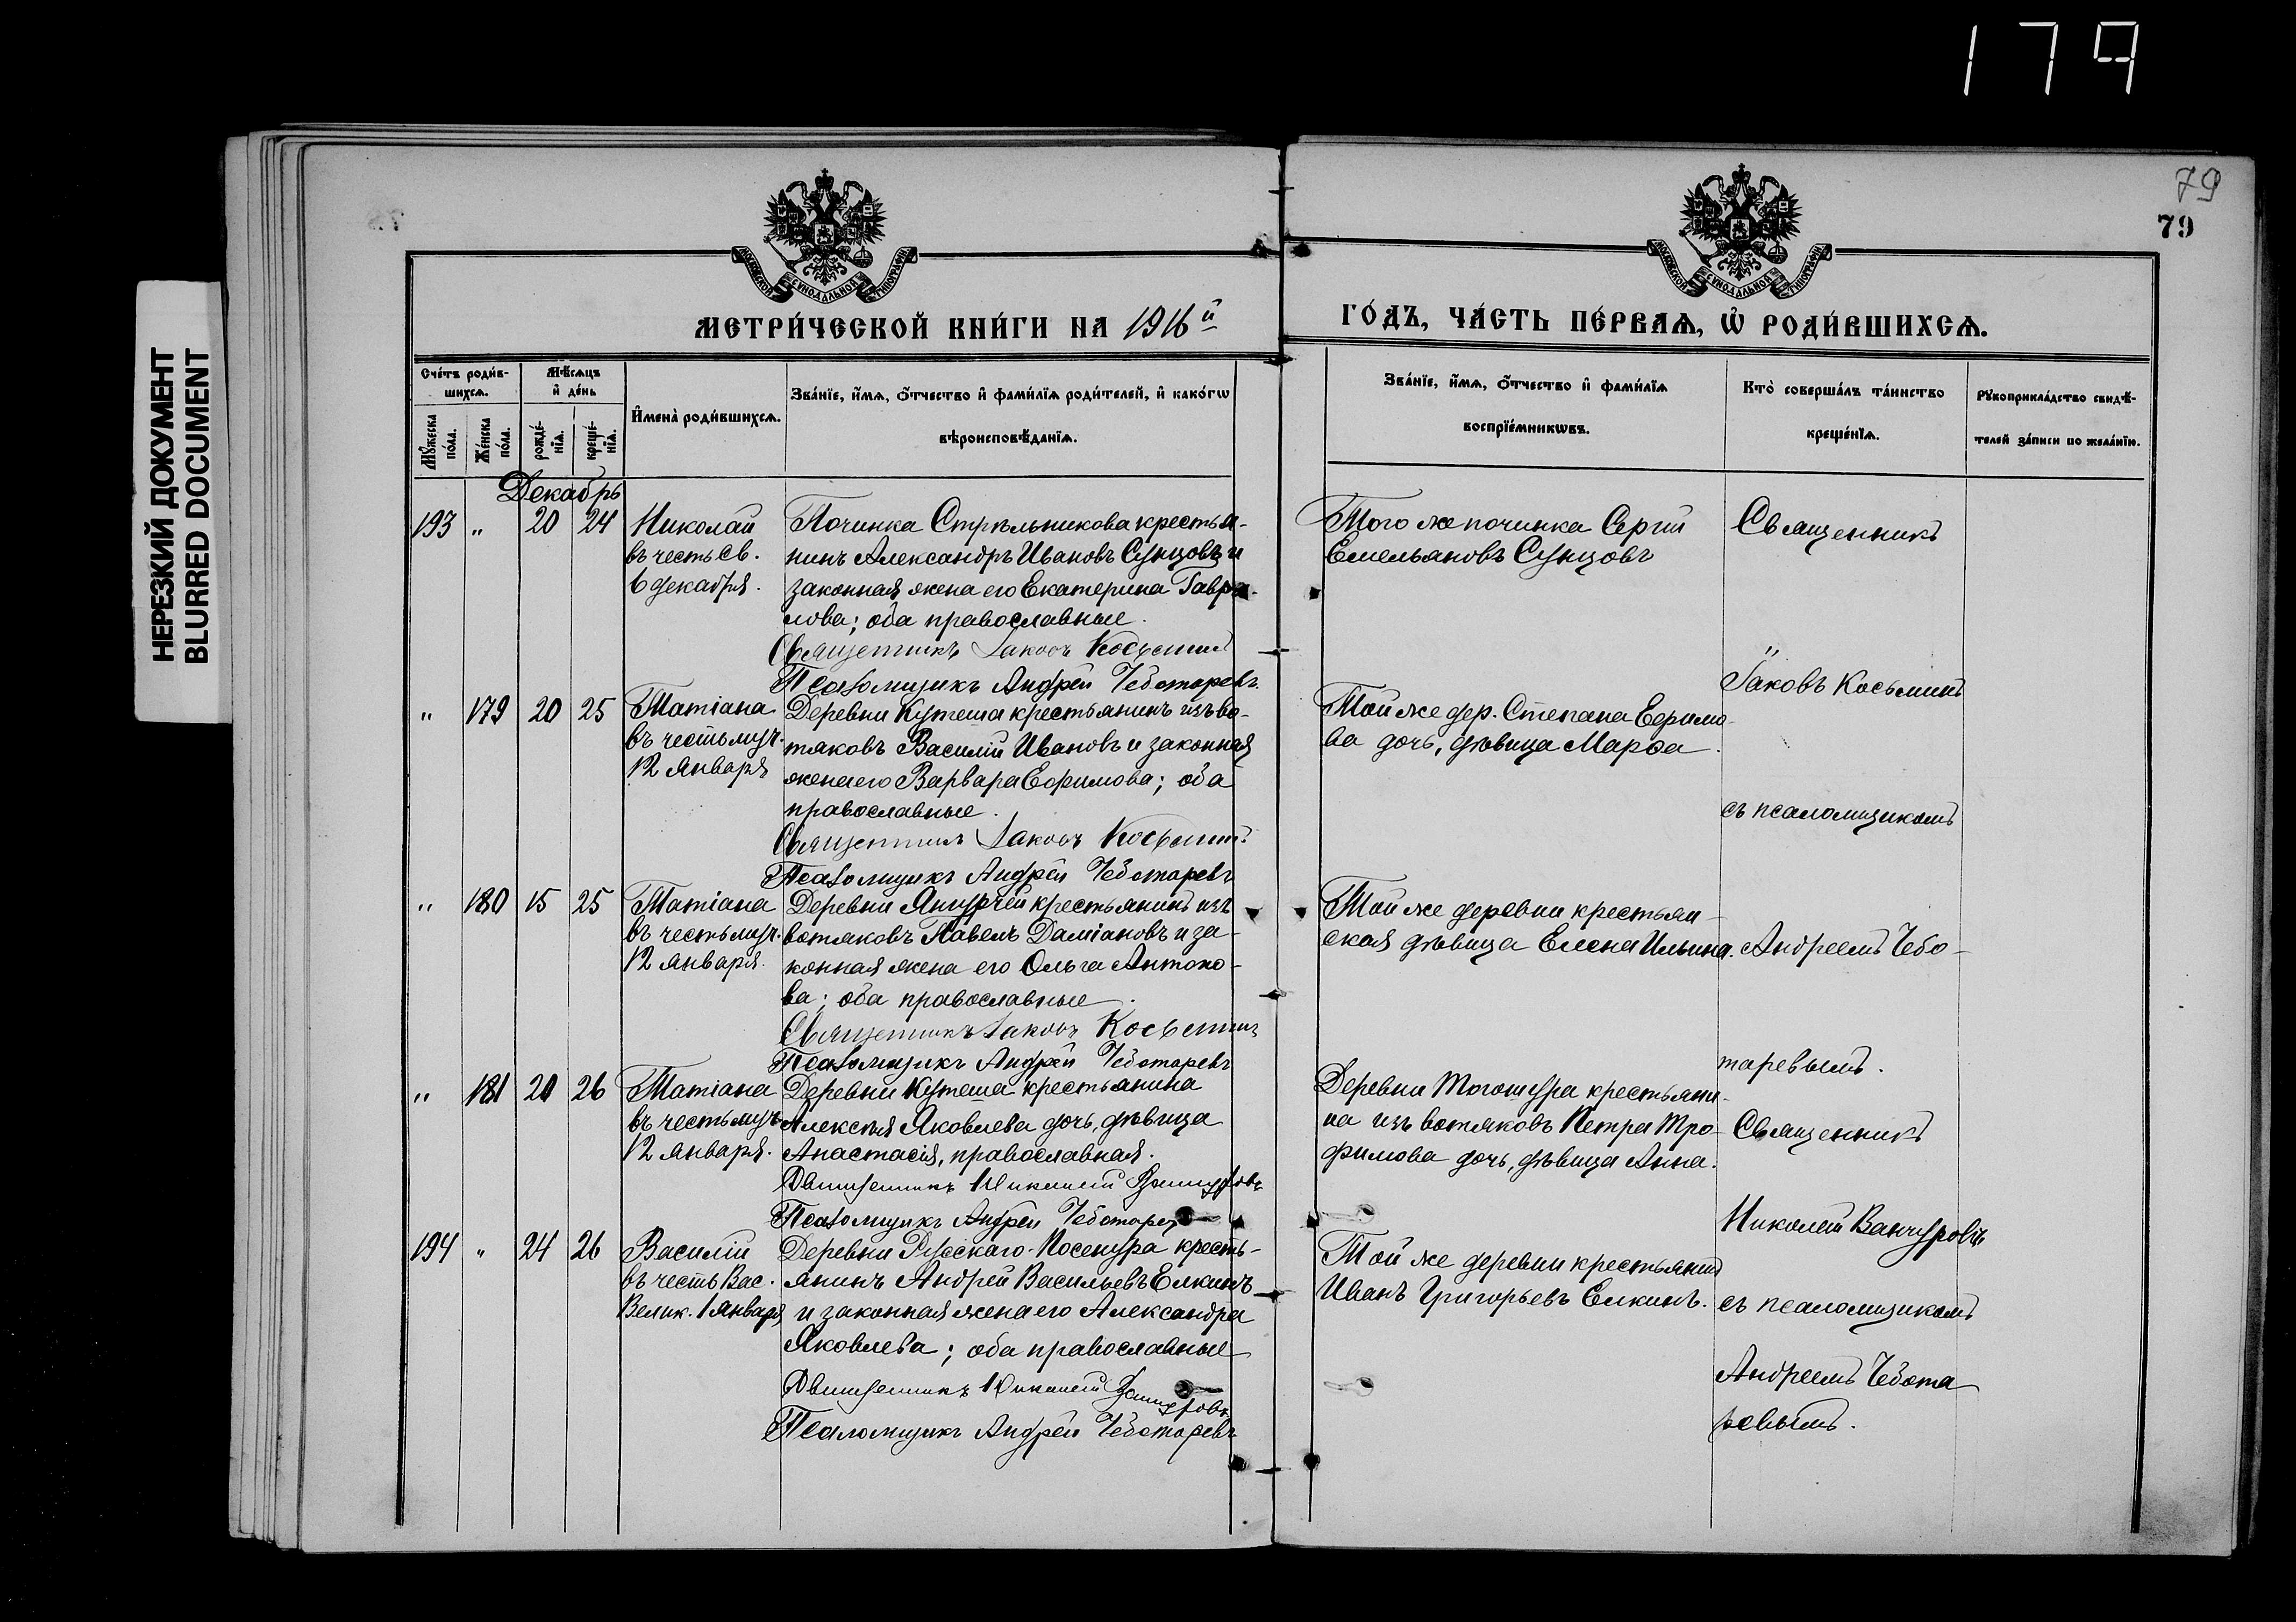 179
НЕРЕЗКИЙ ДОКУМЕНТ
BLURRED DOCUMENT
79
79
МЕТРИ́ЧЕСКОЙ КНИ́ГИ НА 1916й
ГО́ДЪ, ЧА́СТЬ ПЕ́РВАѦ, Ѡ҆ РОДИ́ВШИХСѦ.
Сче́тъ роди́в-
шихсѧ.
Мѣ́сѧцъ
и҆ де́нь
Мꙋ́жеска по́ла.
Же́нска по́ла.
рожде́-
нїѧ.
креще́-
нїѧ.
И҆мена̀ роди́вшихсѧ.
Зва́нїе, и҆́мѧ, ѻ҆́тчество и҆ фами́лїѧ роди́телей, и҆ како́гѡ
вѣроисповѣ́данїѧ.
Зва́нїе, и҆́мѧ, ѻ҆́тчество и҆ фами́лїѧ
воспрїе́мникѡвъ.
Кто̀ соверша́лъ та́инство
креще́нїѧ.
Рꙋкоприкла́дство свидѣ́-
телей за́писи по жела́нїю.
Декабрь
193 " 20 24 Николай
въ честь Св.
6 декабря.
Починка Стрѣльникова крестья-
нинъ Александръ Ивановъ Сунцовъ и
законная жена его Екатерина Гаври-
лова; оба православные.
Священникъ Іаковъ Косьминъ
Псаломщикъ Андрей Чеботаревъ.
Того же починка Сергій
Емельяновъ Сунцовъ
Священникъ
Іаковъ Косьминъ
" 179 20 25 Татіана
въ честь муч.
12 Января
Деревни Кутеша крестьянинъ изъ во-
тяковъ Василій Ивановъ и законная
жена его Варвара Ефимова; оба
православные.
Священникъ Іаковъ Косьминъ
Псаломщикъ Андрей Чеботаревъ
Той же дер. Степана Ефимо-
ва дочь, дѣвица Марѳа.
съ псаломщикомъ
" 180 15 25 Татіана
въ честь муч.
12 января.
Деревни Янгурчей крестьянинъ изъ
вотяковъ Павелъ Даміановъ и за-
конная жена его Ольга Антоно-
ва; оба православные.
Священникъ Іаковъ Косьминъ
Псаломщикъ Андрей Чеботаревъ
Той же деревни крестьян-
ская дѣвица Елена Ильина.
Андреемъ Чебо-
таревымъ.
" 181 20 26 Татіана
въ честь муч.
12 января.
Деревни Кутеша крестьянина
Алексѣя Яковлева дочь, дѣвица
Анастасія, православная.
Священникъ Николай Ванчуровъ
Псаломщикъ Андрей Чеботарев
Деревни Тогошура крестьяни-
на изъ вотяковъ Петра Тро-
фимова дочь, дѣвица Анна.
Священникъ
Николай Ванчуровъ
194 " 24 26 Василій
въ честь Вас.
Велик. 1 Января
Деревни Русскаго-Посекура кресть-
янинъ Андрей Васильевъ Елкинъ
и законная жена его Александра
Яковлева; оба православные
Священникъ Николай Ванчуровъ
Псаломщикъ Андрей Чеботаревъ
Той же деревни крестьянин
Иванъ Григорьевъ Елкинъ.
съ псаломщикомъ
Андреемъ Чебота
ревымъ.